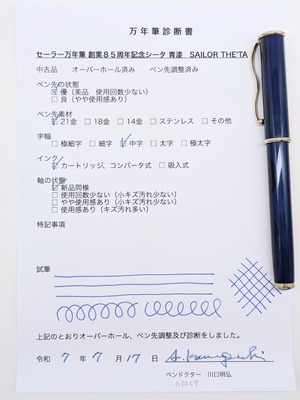 万年筆診断書
セーラー万年筆 創業85周年記念シータ 青漆 SAILOR THETA
中古品 オーバーホール済み ペン先調整済み
ペン先の状態
☑優(美品 使用回数少ない)
□良(やや使用感あり)
ペン先素材
☑21金 □18金 □14金 □ステンレス □その他
字幅
□極細字 □細字 ☑中字 □太字 □極太字
インク
☑カートリッジ、コンバータ式 □吸入式
軸の状態
☑新品同様
□使用回数少ない(小キズ汚れ少ない)
□やや使用感あり(小キズ汚れ少ない)
□使用感あり(キズ汚れ多い)
特記事項
試筆
上記のとおりオーバーホール、ペン先調整及び診断をしました。
令和 7 年 7 月 17 日
ペンドクター 川口明弘